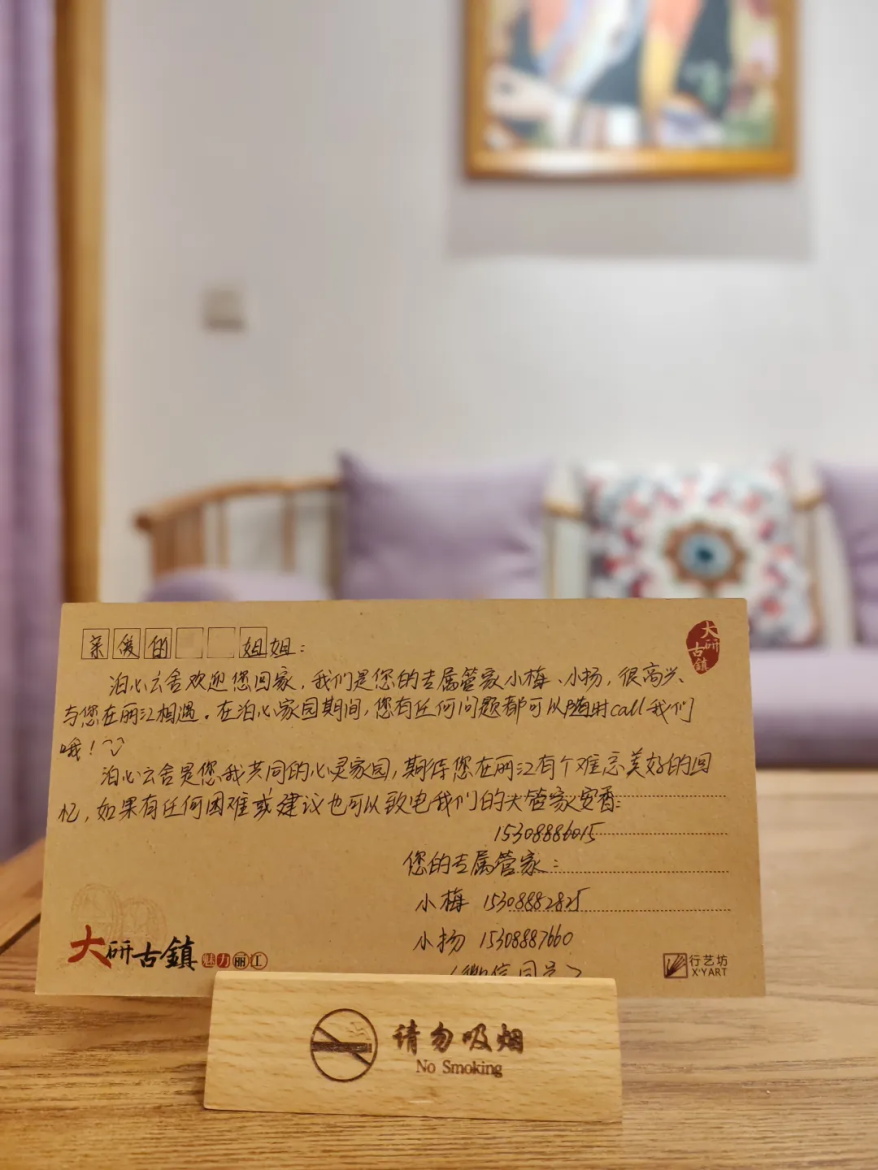 亲爱的 姐姐：
泊心云舍欢迎您回家，我们是您的专属管家小梅、小扬，很高兴
与您在丽江相遇。在泊心家园期间，您有任何问题都可以随时call我们
哦！
泊心云舍是您我共同的心灵家园，期待您在丽江有个难忘美好的回
忆，如果有任何困难或建议也可以致电我们的大管家
15308886015
您的专属管家：
小梅 15308882825
小扬 15308887660
(微信同号)
大研古鎮
大研古鎮 魅力丽江
行艺坊
X'YART
请勿吸烟
No Smoking